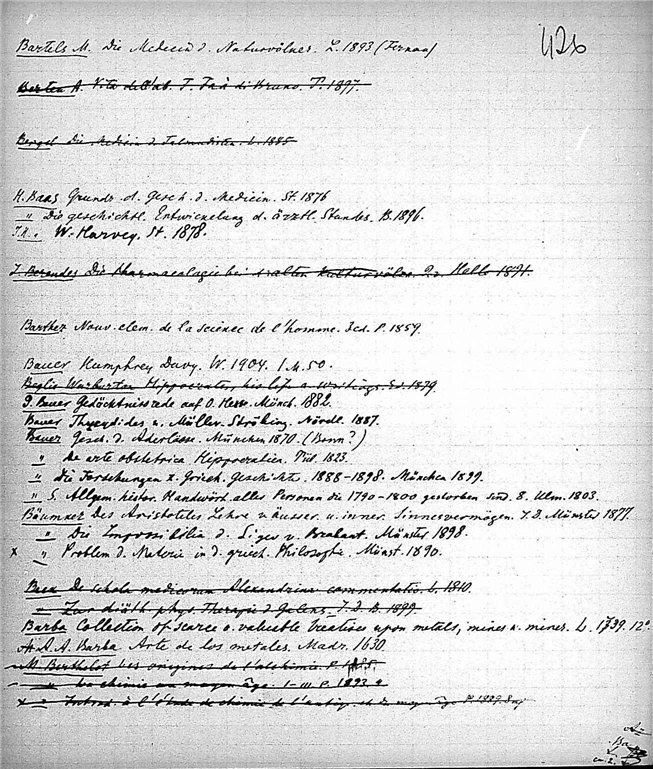 426
Bartels M. Die Medicin d. Naturvölker. L. 1893 (Fernau)
A. Vita dell'ab. F. Faà di Bruno. T. 1897.
Bergel Die Medicin d. Talmudisten. L. 1885
H. Baas Grundr. d. Gesch. d. Medicin. St. 1876
" Die geschichtl. Entwickelung d. ärztl. Standes. B. 1896.
" W. Harvey. St. 1878.
J. Berendes Die Pharmacologie bei alten Kulturvölk. Halle 1891.
Barthez Nouv. elem. de la science de l'homme. 3ed. P. 1859.
Bauer Humphrey Davy. W. 1904. 1.4.50.
Hippocrates, his life a. writings. 1879
Bauer Gedächtnissrede auf O. Hesse. Münch. 1882.
Bauer Thukydides v. Müller-Strübing. Nördl. 1887.
Bauer Gesch. d. Aderlässe. München 1870. (Bonn?)
" De arte obstetricia Hippocratica. 1823.
" Die Forschungen z. Griech. Geschichte. 1888-1898. München 1899.
" S. Allgem. histor. Handwört. aller Personen die 1790-1800 gestorben sind. 8. Ulm. 1803.
Bäumker Des Aristoteles Lehre v. äusser. u. inner. Sinnesvermögen. I.D. Münster 1877.
" Die Impossibilia d. Siger v. Brabant. Münster 1898.
x " Problem d. Materie in d. griech. Philosophie. Münst. 1890.
Beck De schola medicorum Alexandrina commentatio. L. 1810.
" Zur diät. phys. Therapie d. Galens. I.D. B. 1899
Barba Collection of scarce a. valuable treatises upon metals, mines a. miner. L. 1739. 12°.
A. A. Barba Arte de los metales. Madr. 1630.
M. Berthelot Les origines de l'alchimie. P. 1885.
" La chimie au moyen âge. I-III P. 1893
x " Introd. à l'étude de chimie de l'antiq. et du moyen âge P. 1889.